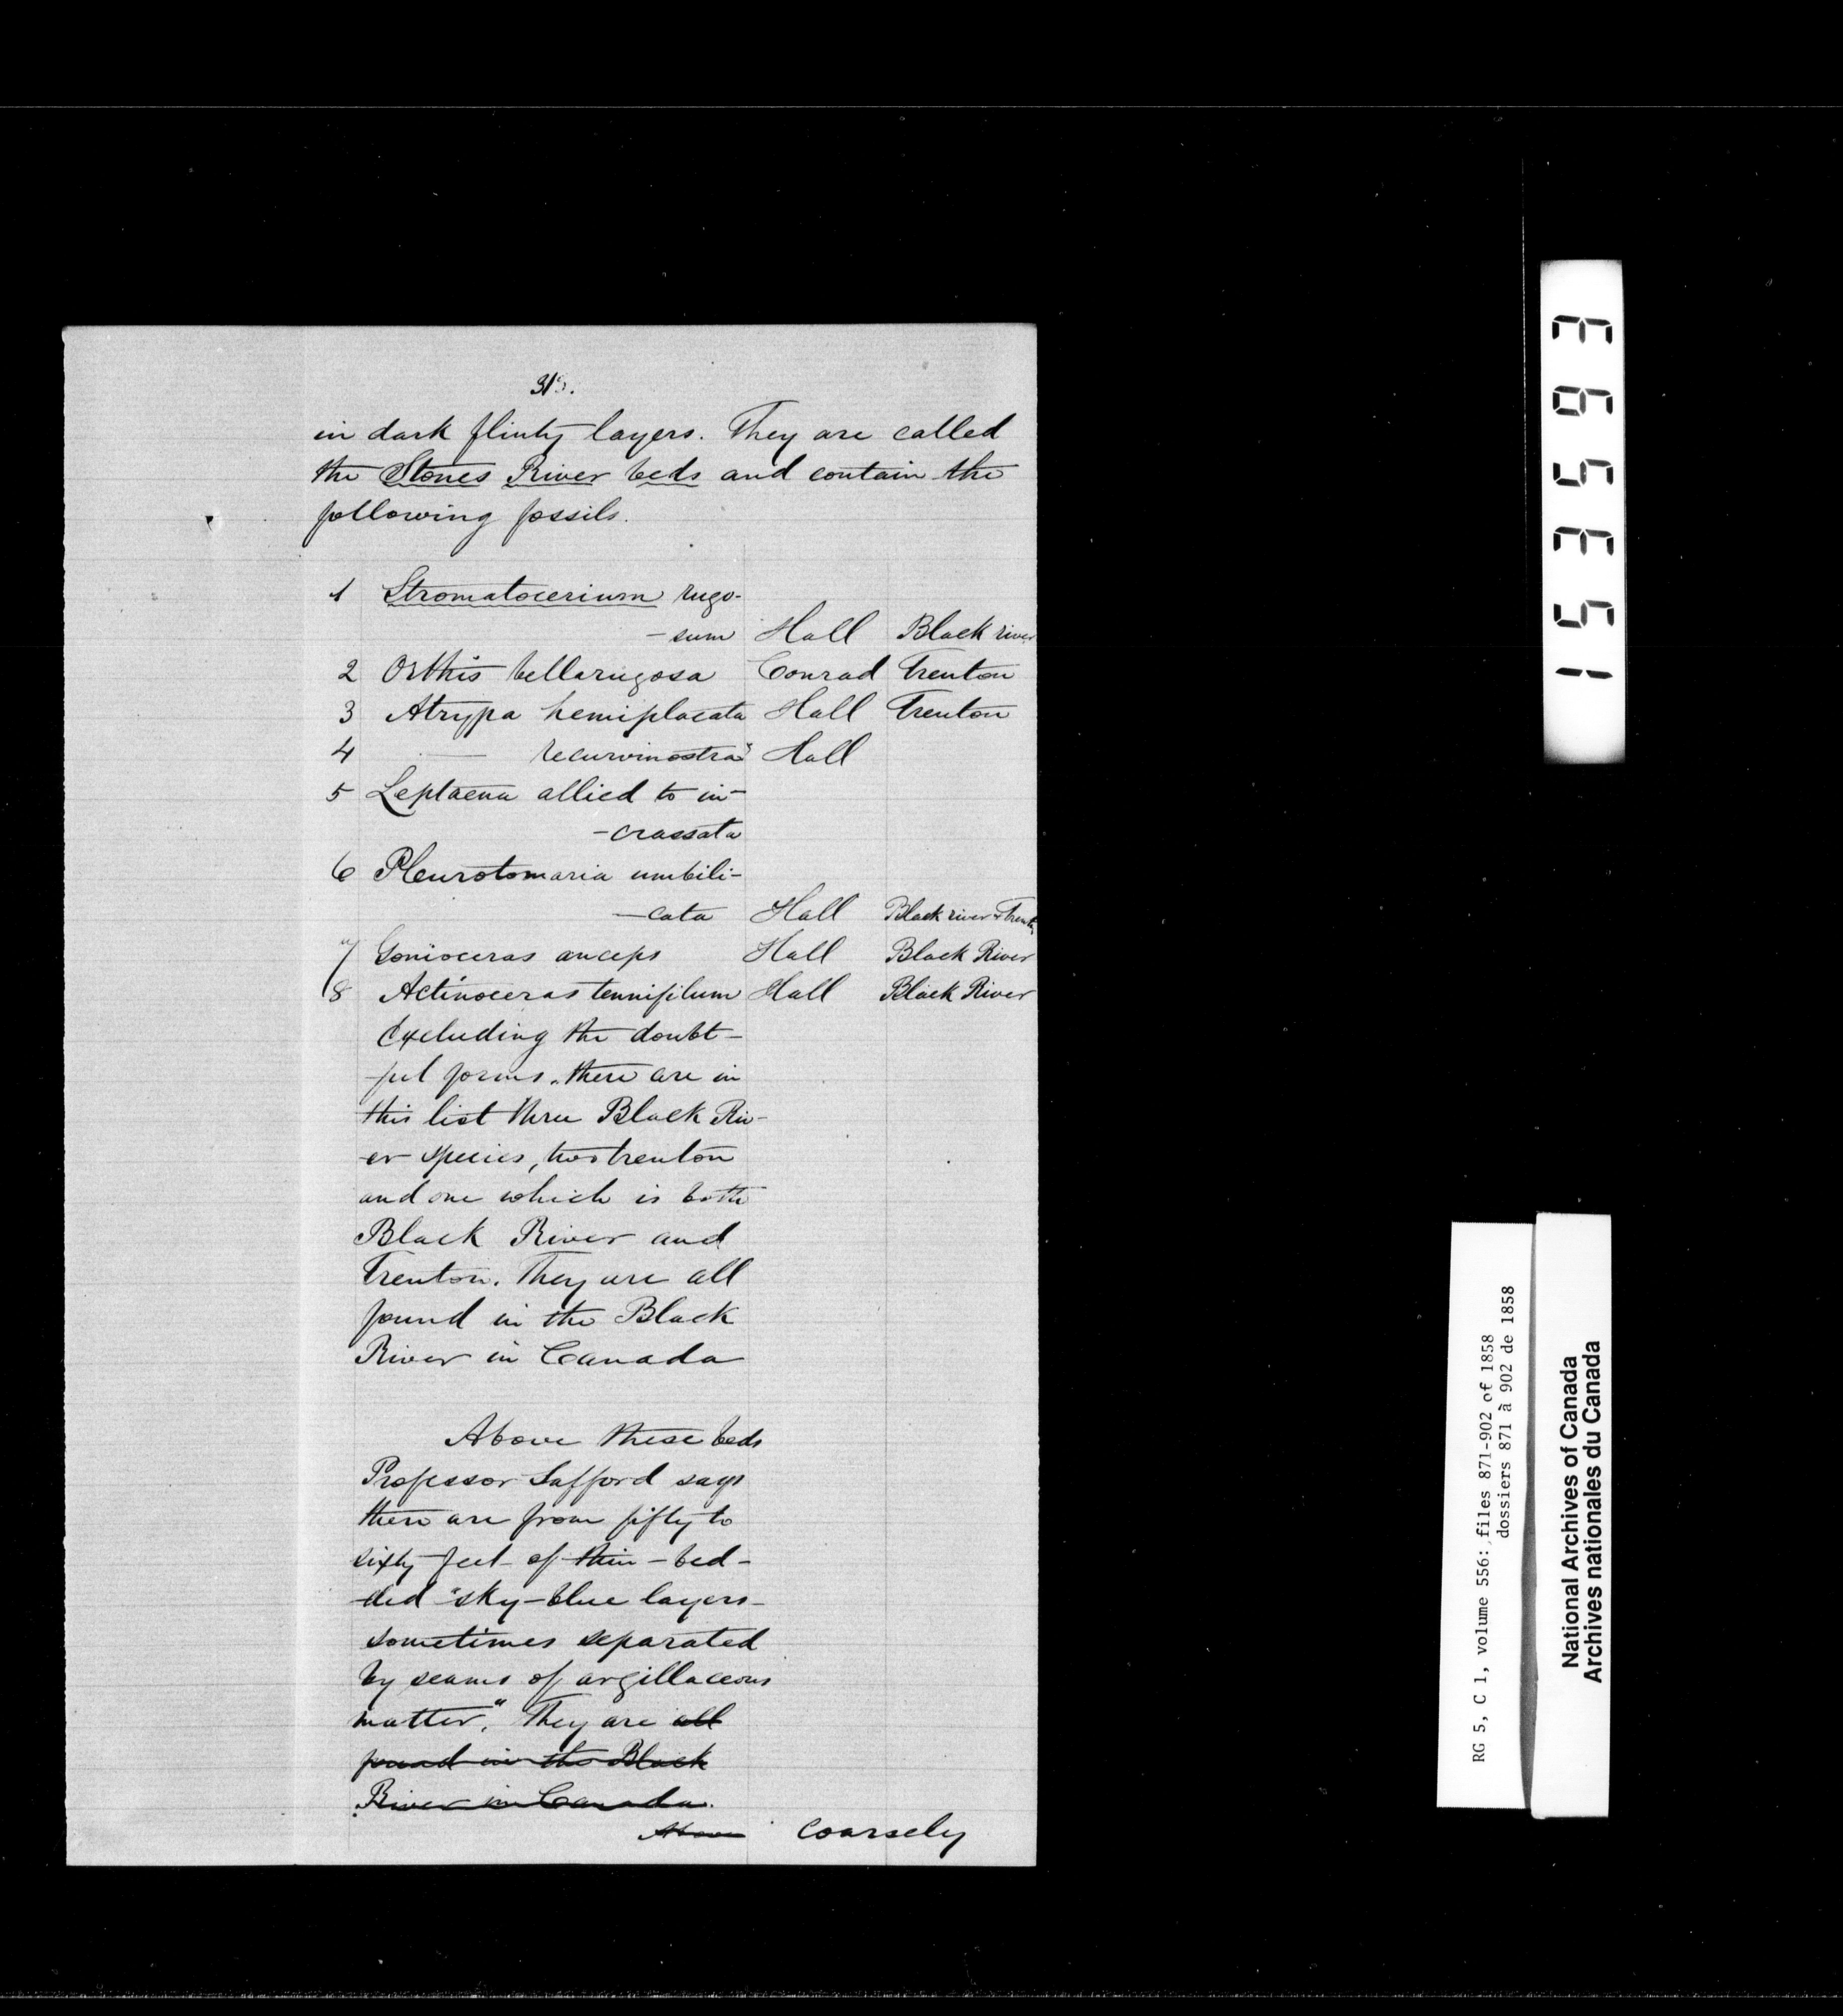 in dark flinty layers. They are called
the Stones River beds and contain the
following fossils.
1 Stromatocerium rugo-
-sum Hall Black river
2 Orthis bellarugosa Conrad Trenton
3 Atrypa hemiplacata Hall Trenton
4 — recurvirostra? Hall
5 Leptaena allied to in-
-crassata
6 Pleurotomaria umbili-
-cata Hall Black river & Trenton
7 Gonioceras anceps Hall Black River
8 Actinoceras tennifilum Hall Black River
Excluding the doubt-
-ful forms, there are in
this list three Black Riv-
-er species, two trenton
and one which is both
Black River and
Trenton. They are all
found in the Black
River in Canada
Above these beds
Professor Safford says
there are from fifty to
sixty feet of thin-bed-
-ded "sky-blue layers
sometimes separated
by seams of argillaceous
matter." They are all
found in the Black
River in Canada.
Above coarsely
153563
RG 5, C 1, volume 556: files 871-902 of 1858
dossiers 871 à 902 de 1858
National Archives of Canada
Archives nationales du Canada